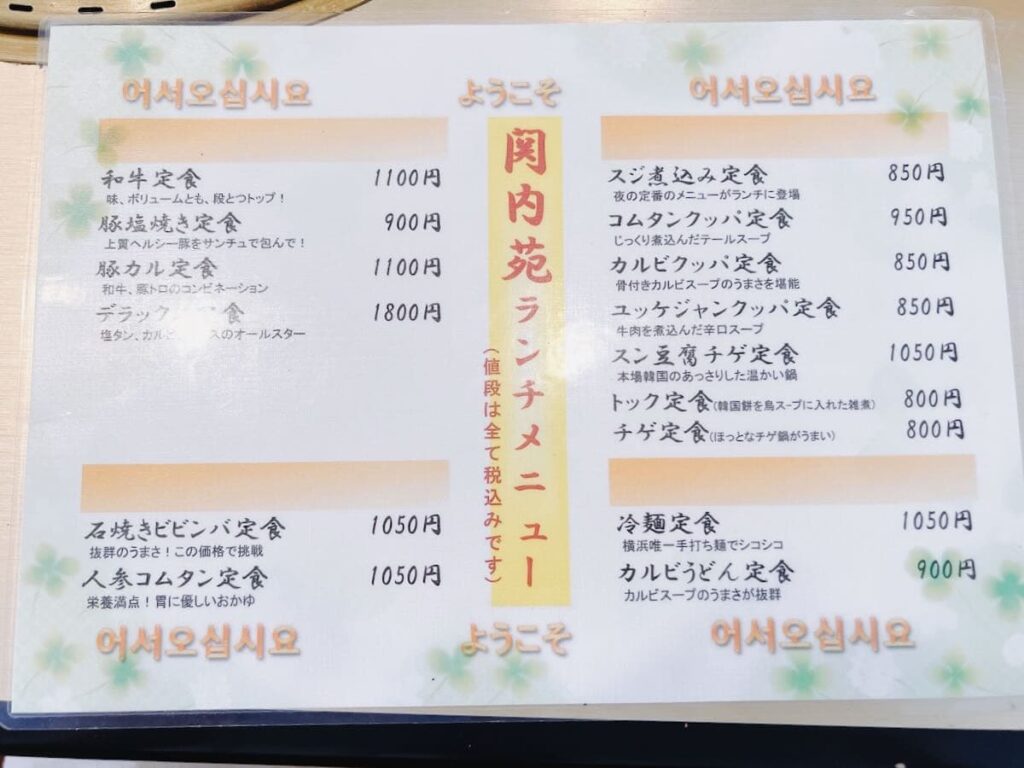 어서오십시요
ようこそ
어서오십시요
和牛定食 1100円
味、ボリュームとも、段とつトップ!
豚塩焼き定食 900円
上質ヘルシー豚をサンチュで包んで!
豚カル定食 1100円
和牛、豚トロのコンビネーション
デラック 定食 1800円
塩タン、カル スのオールスター
石焼きビビンバ定食 1050円
抜群のうまさ!この価格で挑戦
人参コムタン定食 1050円
栄養満点!胃に優しいおかゆ
関内苑ランチメニュー
(値段は全て税込みです)
スジ煮込み定食 850円
夜の定番のメニューがランチに登場
コムタンクッパ定食 950円
じっくり煮込んだテールスープ
カルビクッパ定食 850円
骨付きカルビスープのうまさを堪能
ユッケジャンクッパ定食 850円
牛肉を煮込んだ辛口スープ
スン豆腐チゲ定食 1050円
本場韓国のあっさりした温かい鍋
トック定食(韓国餅を鳥スープに入れた雑煮) 800円
チゲ定食(ほっとなチゲ鍋がうまい) 800円
冷麺定食 1050円
横浜唯一手打ち麺でシコシコ
カルビうどん定食 900円
カルビスープのうまさが抜群
어서오십시요
ようこそ
어서오십시요